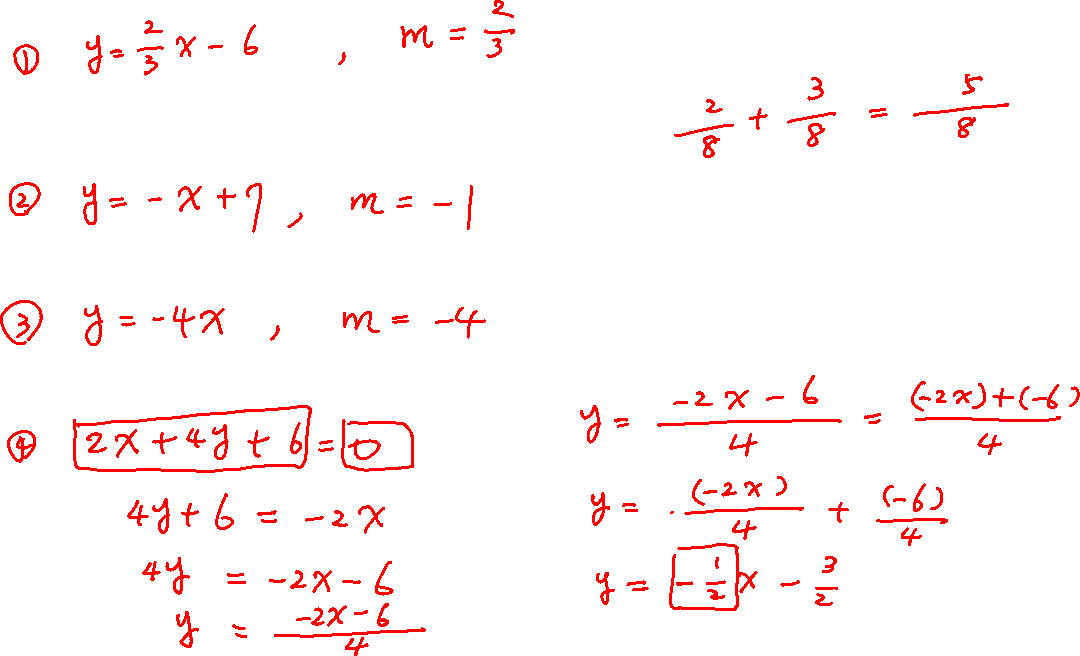 ① y = 2/3 x - 6 , m = 2/3
2/8 + 3/8 = 5/8
② y = - x + 7 , m = -1
③ y = -4x , m = -4
④ 2x + 4y + 6 = 0
4y + 6 = -2x
4y = -2x - 6
y = (-2x - 6)/4
y = (-2x - 6)/4 = ((-2x)+(-6))/4
y = (-2x)/4 + (-6)/4
y = -1/2 x - 3/2